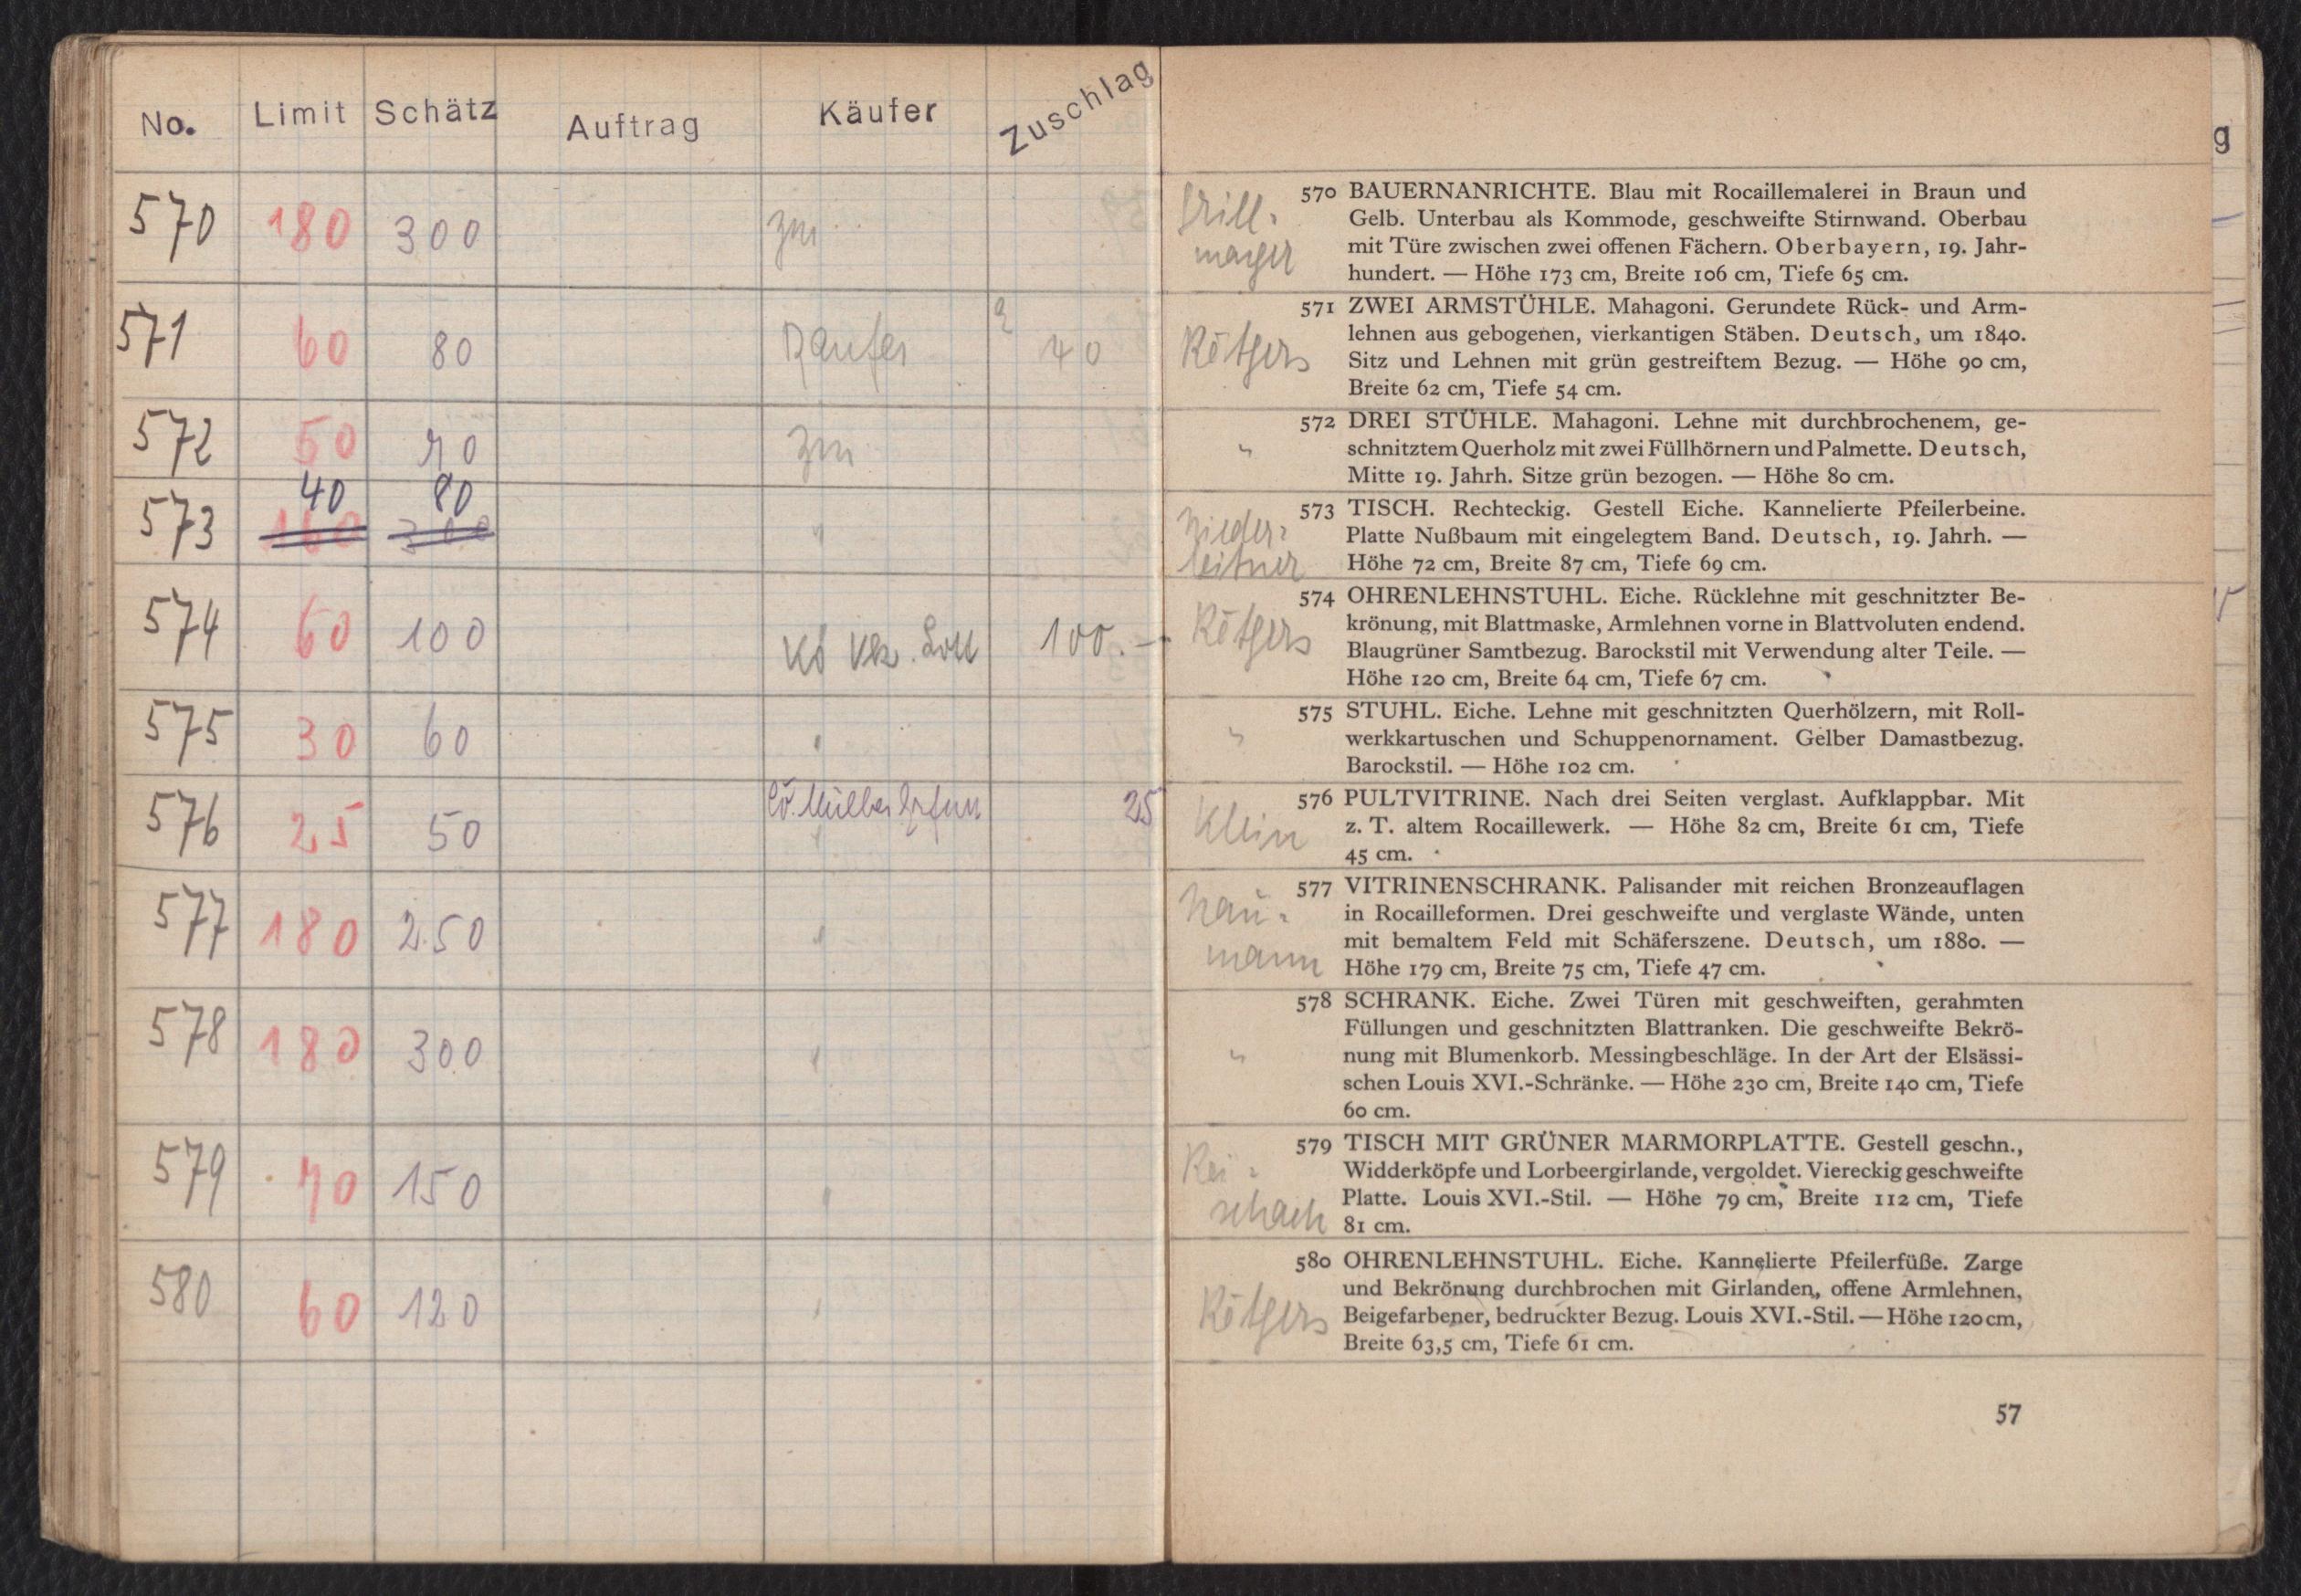 No. Limit Schätz Auftrag Käufer Zuschlag
570 180 300 zur
571 60 80 40
572 50 70 zur
40 80
573 160 300 "
574 60 100 100.–
575 30 60 "
576 25 50 25
577 180 250 "
578 180 300 "
579 70 150 "
580 60 120 "
g
570 BAUERNANRICHTE. Blau mit Rocaillemalerei in Braun und
Gelb. Unterbau als Kommode, geschweifte Stirnwand. Oberbau
mit Türe zwischen zwei offenen Fächern. Oberbayern, 19. Jahr-
hundert. — Höhe 173 cm, Breite 106 cm, Tiefe 65 cm.
571 ZWEI ARMSTÜHLE. Mahagoni. Gerundete Rück- und Arm-
Rötgers lehnen aus gebogenen, vierkantigen Stäben. Deutsch, um 1840.
Sitz und Lehnen mit grün gestreiftem Bezug. — Höhe 90 cm,
Breite 62 cm, Tiefe 54 cm.
572 DREI STÜHLE. Mahagoni. Lehne mit durchbrochenem, ge-
" schnitztem Querholz mit zwei Füllhörnern und Palmette. Deutsch,
Mitte 19. Jahrh. Sitze grün bezogen. — Höhe 80 cm.
Nieder- 573 TISCH. Rechteckig. Gestell Eiche. Kannelierte Pfeilerbeine.
Platte Nußbaum mit eingelegtem Band. Deutsch, 19. Jahrh. —
leitner Höhe 72 cm, Breite 87 cm, Tiefe 69 cm.
574 OHRENLEHNSTUHL. Eiche. Rücklehne mit geschnitzter Be-
Rötgers krönung, mit Blattmaske, Armlehnen vorne in Blattvoluten endend.
Blaugrüner Samtbezug. Barockstil mit Verwendung alter Teile. —
Höhe 120 cm, Breite 64 cm, Tiefe 67 cm.
575 STUHL. Eiche. Lehne mit geschnitzten Querhölzern, mit Roll-
" werkkartuschen und Schuppenornament. Gelber Damastbezug.
Barockstil. — Höhe 102 cm.
576 PULTVITRINE. Nach drei Seiten verglast. Aufklappbar. Mit
Klein z. T. altem Rocaillewerk. — Höhe 82 cm, Breite 61 cm, Tiefe
45 cm.
577 VITRINENSCHRANK. Palisander mit reichen Bronzeauflagen
Nau- in Rocailleformen. Drei geschweifte und verglaste Wände, unten
mann mit bemaltem Feld mit Schäferszene. Deutsch, um 1880. —
Höhe 179 cm, Breite 75 cm, Tiefe 47 cm.
578 SCHRANK. Eiche. Zwei Türen mit geschweiften, gerahmten
Füllungen und geschnitzten Blattranken. Die geschweifte Bekrö-
" nung mit Blumenkorb. Messingbeschläge. In der Art der Elsässi-
schen Louis XVI.-Schränke. — Höhe 230 cm, Breite 140 cm, Tiefe
60 cm.
579 TISCH MIT GRÜNER MARMORPLATTE. Gestell geschn.,
Rei- Widderköpfe und Lorbeergirlande, vergoldet. Viereckig geschweifte
schach Platte. Louis XVI.-Stil. — Höhe 79 cm, Breite 112 cm, Tiefe
81 cm.
580 OHRENLEHNSTUHL. Eiche. Kannelierte Pfeilerfüße. Zarge
und Bekrönung durchbrochen mit Girlanden, offene Armlehnen,
Rötgers Beigefarbener, bedruckter Bezug. Louis XVI.-Stil. — Höhe 120 cm,
Breite 63,5 cm, Tiefe 61 cm.
57